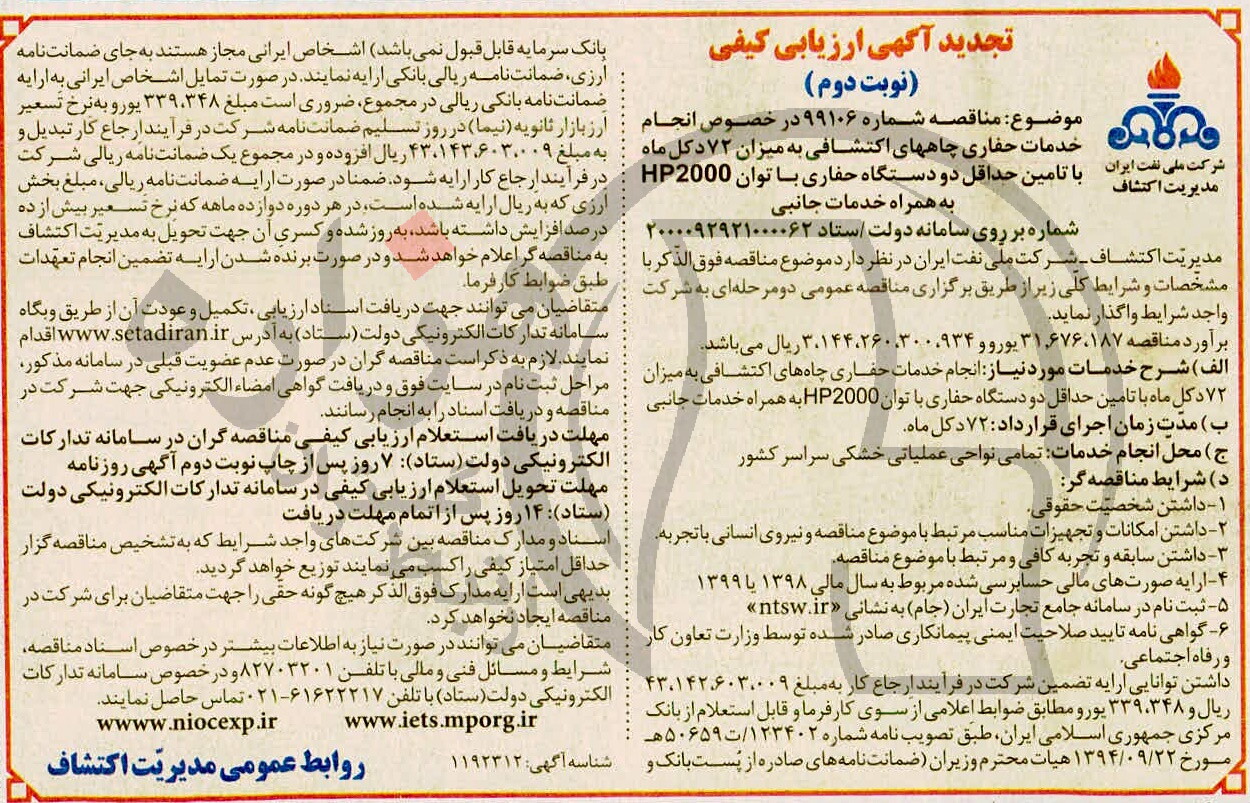 تجدید آگهی ارزیابی کیفی
(نوبت دوم)
شرکت ملی نفت ایران
مدیریت اکتشاف
موضوع: مناقصه شماره ۹۹۱۰۶ در خصوص انجام
خدمات حفاری چاههای اکتشافی به میزان ۷۲ دکل ماه
با تامین حداقل دو دستگاه حفاری با توان HP2000
به همراه خدمات جانبی
شماره بر روی سامانه دولت/ستاد ۲۰۰۰۰۹۲۹۲۱۰۰۰۰۶۲
مدیریّت اکتشاف ـ شرکت ملّی نفت ایران در نظر دارد موضوع مناقصه فوق‌الذّکر با
مشخّصات و شرایط کلّی زیر از طریق برگزاری مناقصه عمومی دومرحله‌ای به شرکت
واجد شرایط واگذار نماید.
برآورد مناقصه ۳۱،۶۷۶،۱۸۷ یورو و ۳،۱۴۴،۲۶۰،۳۰۰،۹۳۴ ریال می‌باشد.
الف) شرح خدمات مورد نیاز: انجام خدمات حفاری چاه‌های اکتشافی به میزان
۷۲ دکل ماه با تامین حداقل دو دستگاه حفاری با توان HP2000 به همراه خدمات جانبی
ب) مدّت زمان اجرای قرارداد: ۷۲ دکل ماه.
ج) محل انجام خدمات: تمامی نواحی عملیاتی خشکی سراسر کشور
د) شرایط مناقصه‌گر:
۱- داشتن شخصیّت حقوقی.
۲- داشتن امکانات و تجهیزات مناسب مرتبط با موضوع مناقصه و نیروی انسانی با تجربه.
۳- داشتن سابقه و تجربه کافی و مرتبط با موضوع مناقصه
۴- ارایه صورت‌های مالی حسابرسی شده مربوط به سال مالی ۱۳۹۸ یا ۱۳۹۹
۵- ثبت نام در سامانه جامع تجارت ایران (جام) به نشانی «ntsw.ir»
۶- گواهی نامه تایید صلاحیت ایمنی پیمانکاری صادر شده توسط وزارت تعاون کار
و رفاه اجتماعی.
داشتن توانایی ارایه تضمین شرکت در فرآیند ارجاع کار به مبلغ ۴۳،۱۴۲،۶۰۳،۰۰۹
ریال و ۳۳۹،۳۴۸ یورو مطابق ضوابط اعلامی از سوی کارفرما و قابل استعلام از بانک
مرکزی جمهوری اسلامی ایران، طبق تصویب نامه شماره ۱۲۳۴۰۲/ت ۵۰۶۵۹ هـ
مورخ ۱۳۹۴/۰۹/۲۲ هیات محترم وزیران (ضمانت‌نامه‌های صادره از پُست بانک و
بانک سرمایه قابل قبول نمی‌باشد) اشخاص ایرانی مجاز هستند به جای ضمانت‌نامه
ارزی، ضمانت‌نامه ریالی بانکی ارایه نمایند. در صورت تمایل اشخاص ایرانی به ارایه
ضمانت‌نامه بانکی ریالی در مجموع، ضروری است مبلغ ۳۳۹،۳۴۸ یورو به نرخ تسعیر
ارز بازار ثانویه (نیما) در روز تسلیم ضمانت‌نامه شرکت در فرآیند ارجاع کار تبدیل و
به مبلغ ۴۳،۱۴۳،۶۰۳،۰۰۹ ریال افزوده و در مجموع یک ضمانت‌نامه ریالی شرکت
در فرآیند ارجاع کار ارایه شود. ضمنا در صورت ارایه ضمانت‌نامه ریالی، مبلغ بخش
ارزی که به ریال ارایه شده است، در هر دوره دوازده ماهه که نرخ تسعیر بیش از ده
درصد افزایش داشته باشد، به‌روز شده و کسری آن جهت تحویل به مدیریّت اکتشاف
به مناقصه‌گر اعلام خواهد شد و در صورت برنده شدن ارایه تضمین انجام تعهّدات
طبق ضوابط کارفرما.
متقاضیان می‌توانند جهت دریافت اسناد ارزیابی، تکمیل و عودت آن از طریق وبگاه
سامانه تدارکات الکترونیکی دولت (ستاد) به آدرس www.setadiran.ir اقدام
نمایند. لازم به ذکر است مناقصه گران در صورت عدم عضویت قبلی در سامانه مذکور،
مراحل ثبت نام در سایت فوق و دریافت گواهی امضاء الکترونیکی جهت شرکت در
مناقصه و دریافت اسناد را به انجام رسانند.
مهلت دریافت استعلام ارزیابی کیفی مناقصه گران در سامانه تدارکات
الکترونیکی دولت (ستاد): ۷ روز پس از چاپ نوبت دوم آگهی روزنامه
مهلت تحویل استعلام ارزیابی کیفی در سامانه تدارکات الکترونیکی دولت
(ستاد): ۱۴ روز پس از اتمام مهلت دریافت
اسناد و مدارک مناقصه بین شرکت‌های واجد شرایط که به تشخیص مناقصه گزار
حداقل امتیاز کیفی را کسب می نمایند توزیع خواهد گردید.
بدیهی است ارایه مدارک فوق‌الذکر هیچ گونه حقّی را جهت متقاضیان برای شرکت در
مناقصه ایجاد نخواهد کرد.
متقاضیان می توانند در صورت نیاز به اطلاعات بیشتر در خصوص اسناد مناقصه،
شرایط و مسائل فنی و مالی با تلفن ۸۲۷۰۳۲۰۱ و در خصوص سامانه تدارکات
الکترونیکی دولت (ستاد) با تلفن ۰۲۱-۶۱۶۲۲۲۱۷ تماس حاصل نمایند.
www.iets.mporg.ir wwww.niocexp.ir
شناسه آگهی: ۱۱۹۲۳۱۲
روابط عمومی مدیریّت اکتشاف